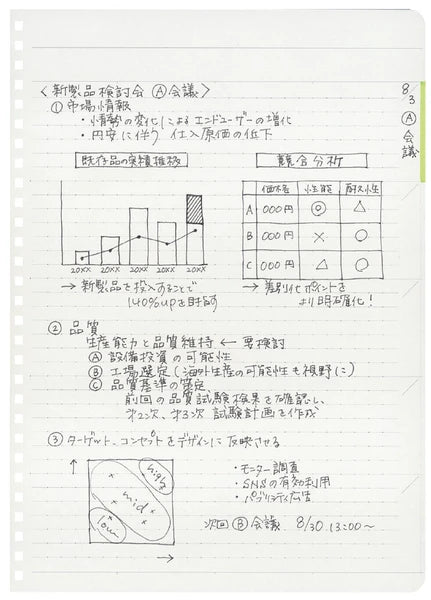 8/3 Ⓐ会議
〈新製品検討会 Ⓐ会議〉
① 市場情報
・情勢の変化によるエンドユーザーの増化
・円安に伴う 仕入原価の低下
既存品の実積推移
20XX 20XX 20XX 20XX 20XX
→ 新製品を投入することで
140%upを目指す
競合分析
価格 性能 耐久性
A 000円 ◎ △
B 000円 × ○
C 000円 △ ◎
→ 差別化ポイントを
より明確化!
② 品質
生産能力と品質維持 ← 要検討
Ⓐ 設備投資の可能性
Ⓑ 工場選定(海外生産の可能性も視野に)
Ⓒ 品質基準の策定
前回の品質試験検果を確認し、
第2次、第3次 試験計画を作成
③ ターゲット、コンセプトをデザインに反映させる
high
mid
low
・モニター調査
・SNSの有効利用
・パブリシティ広告
次回 Ⓑ会議 8/30 13:00〜